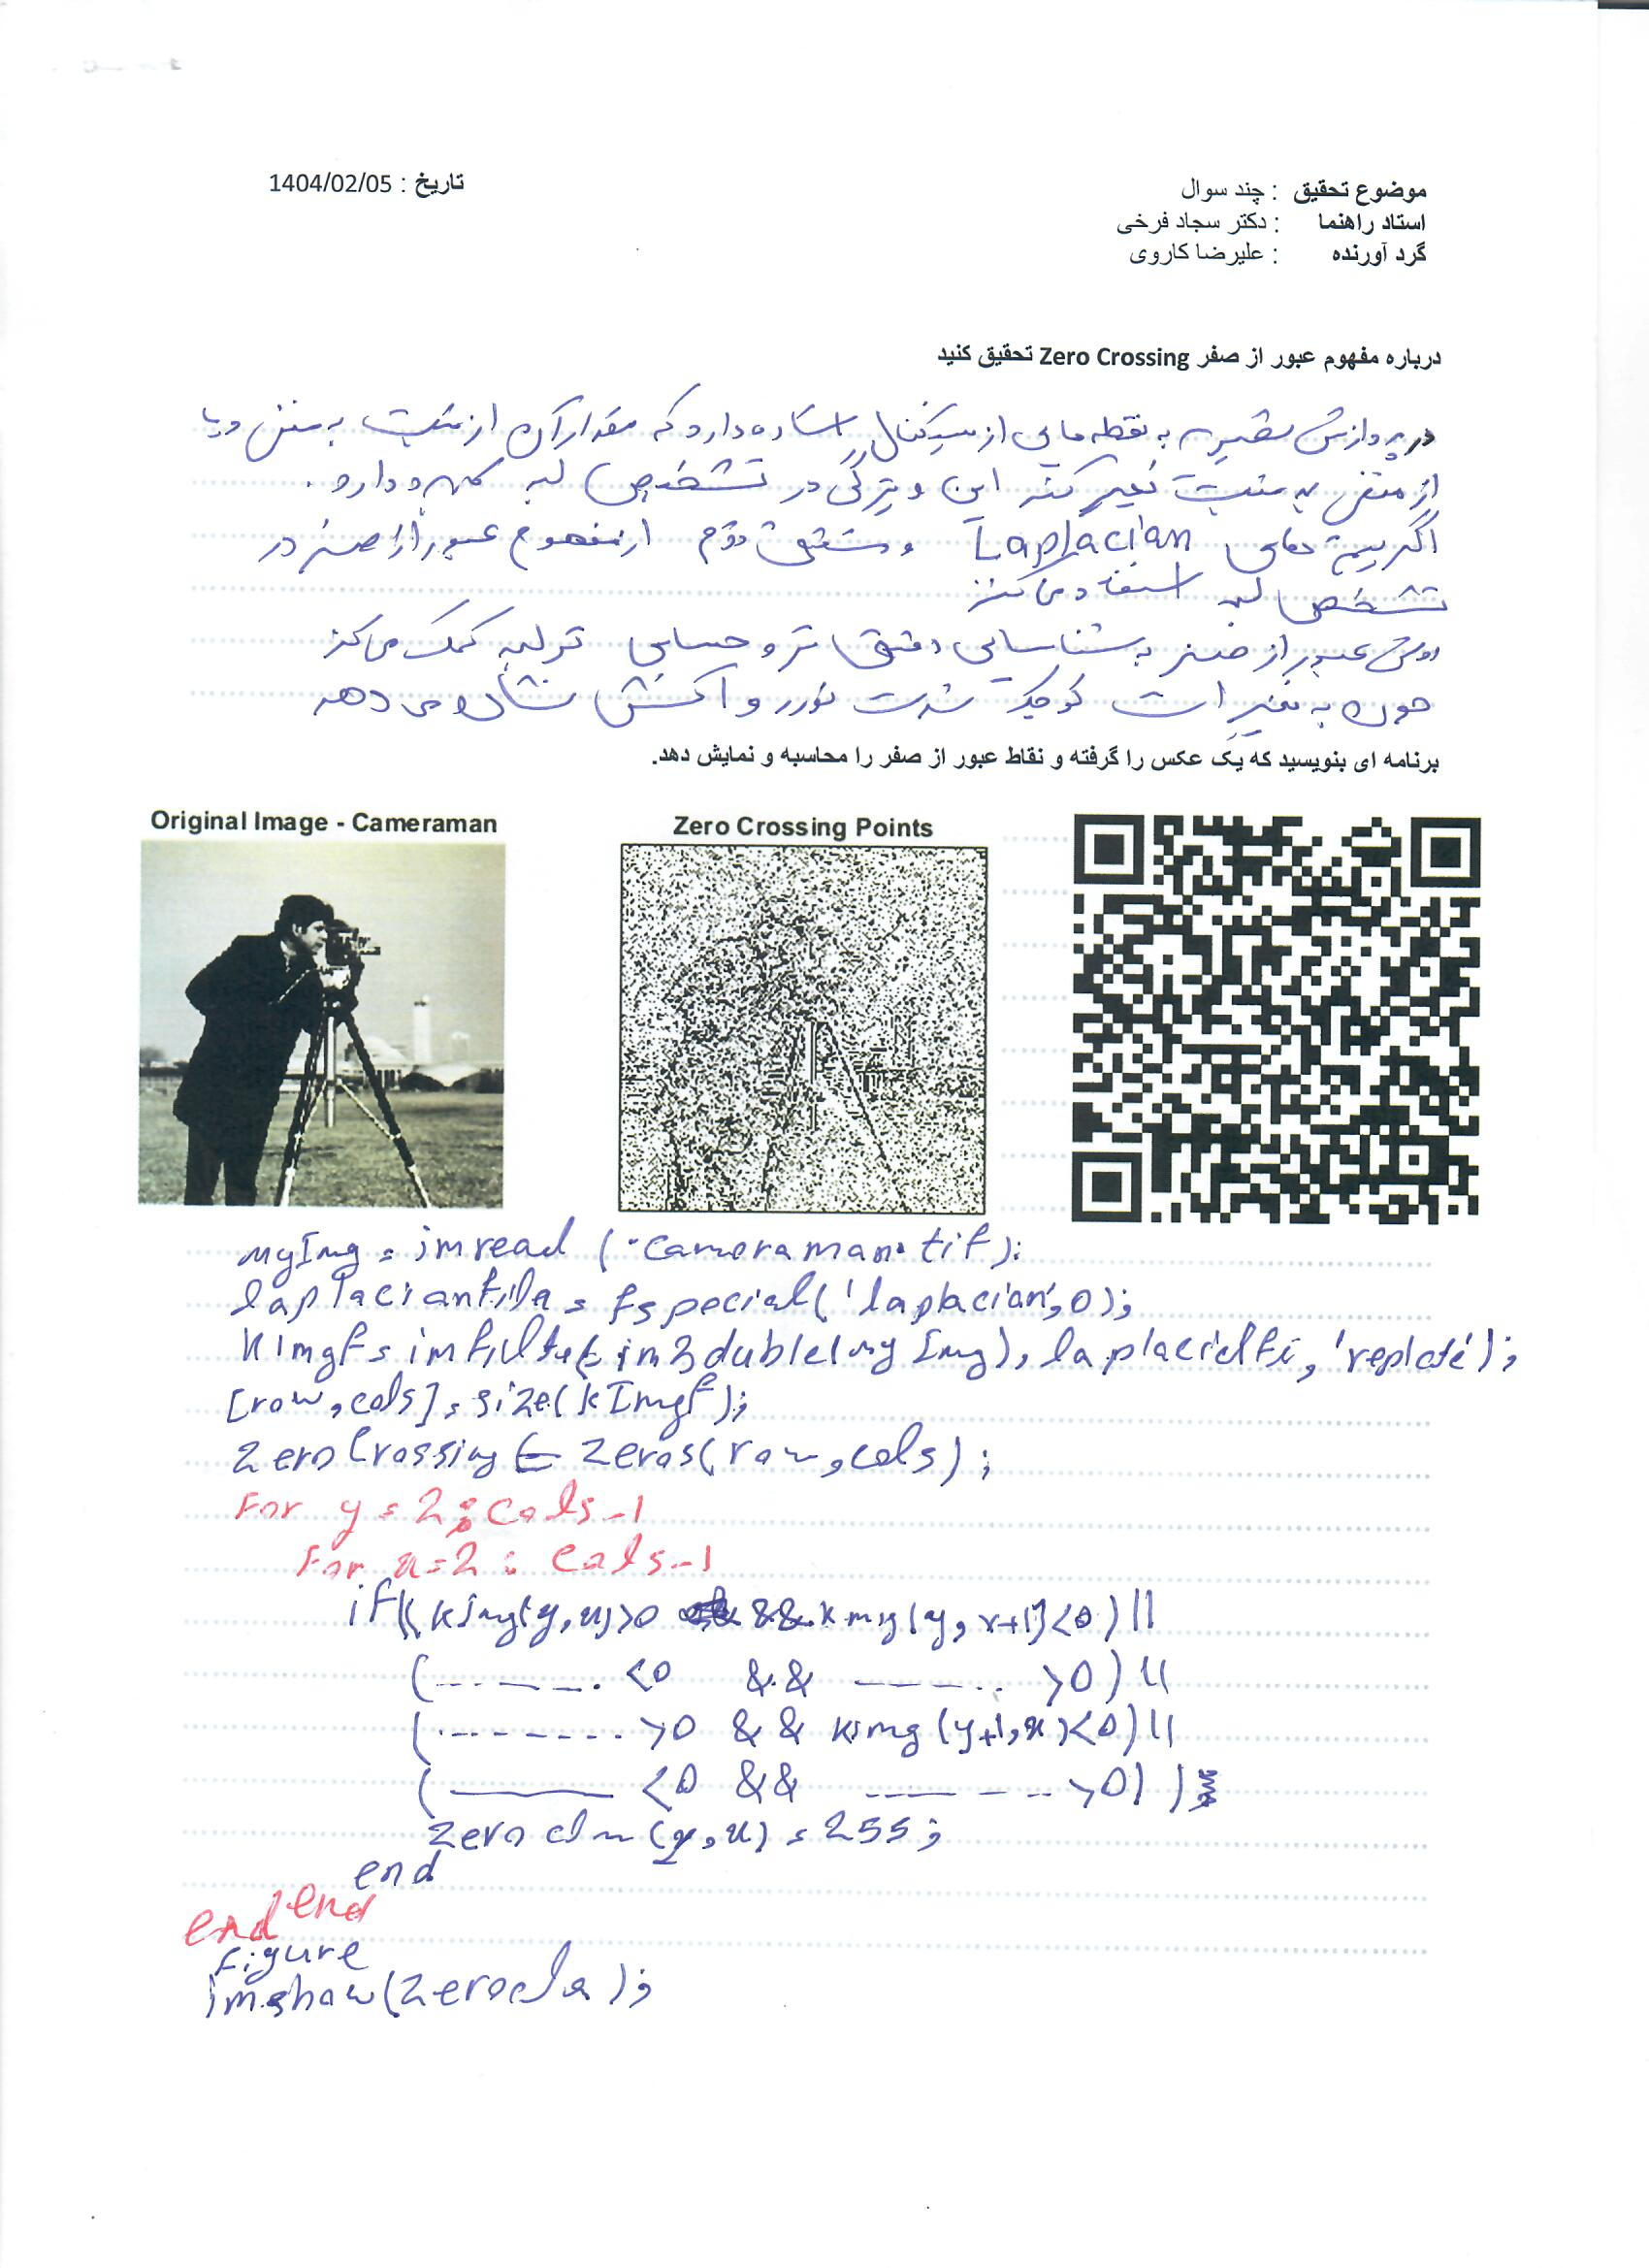 تاریخ : 1404/02/05
موضوع تحقیق : چند سوال
استاد راهنما : دکتر سجاد فرخی
گرد آورنده : علیرضا کاروی
درباره مفهوم عبور از صفر Zero Crossing تحقیق کنید
در پردازش تصویر به نقطه هایی از سیگنال اشاره دارد که مقدار آن از مثبت به منفی و یا
از منفی به مثبت تغییر کند این ویژگی در تشخیص لبه کاربرد دارد .
الگوریتم های Laplacian و مشتق دوم از مفهوم عبور از صفر در
تشخیص لبه استفاده می کنند
روش عبور از صفر به شناسایی دقیق تر و حساس تر لبه کمک می کند
چون به تغییرات کوچک شدت نور واکنش نشان می دهد
برنامه ای بنویسید که یک عکس را گرفته و نقاط عبور از صفر را محاسبه و نمایش دهد.
Original Image - Cameraman
Zero Crossing Points
myImg = imread ('cameraman.tif);
laplacianfila = fspecial('laplacian',0);
kImgF = imfilter( im2duble(myImg), laplacialfi, 'replate');
[row,cols] = size(kImgF);
zeroCrossing = zeros(row,cols);
For y = 2 : cols-1
For x = 2 : cols-1
if((kimg(y,x)>0 && kmg(y,x+1)<0) ||
(------- <0 && ------ >0) ||
(-------- >0 && kimg(y+1,x)<0) ||
(------ <0 && ------- >0) )
zerocln(y,x) = 255;
end
end
end
figure
imshow(zerocla);